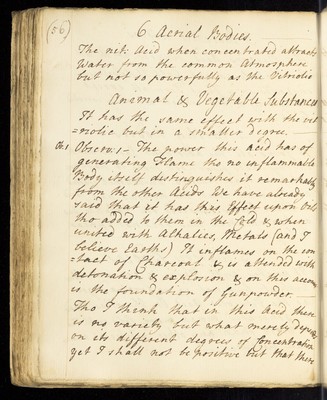 (56)
6 Aerial Bodies.
The nit: Acid when concentrated attracts
Water from the common Atmosphere
but not so powerfully as the Vitriolic
Animal & Vegetable Substances
It has the same effect with the vit
=riolic but in a smaller degree.
Ob:1 Observ: 1 - The power this acid has of
generating Flame tho no inflammable
Body itself distinguishes it remarkably
from the other Acids We have already
said that it has this Effect upon Oils
tho added to them in the Cold & when
united with Alkalies, Metals (and I
believe Earths) It inflames on the con
=tact of Charcoal & is attended with
detonation & explosion & on this accou
is the foundation of Gunpowder
Tho I think that in this Acid there
is no variety but what merely depends
on its different degrees of Concentration
yet I shall not be positive but that there